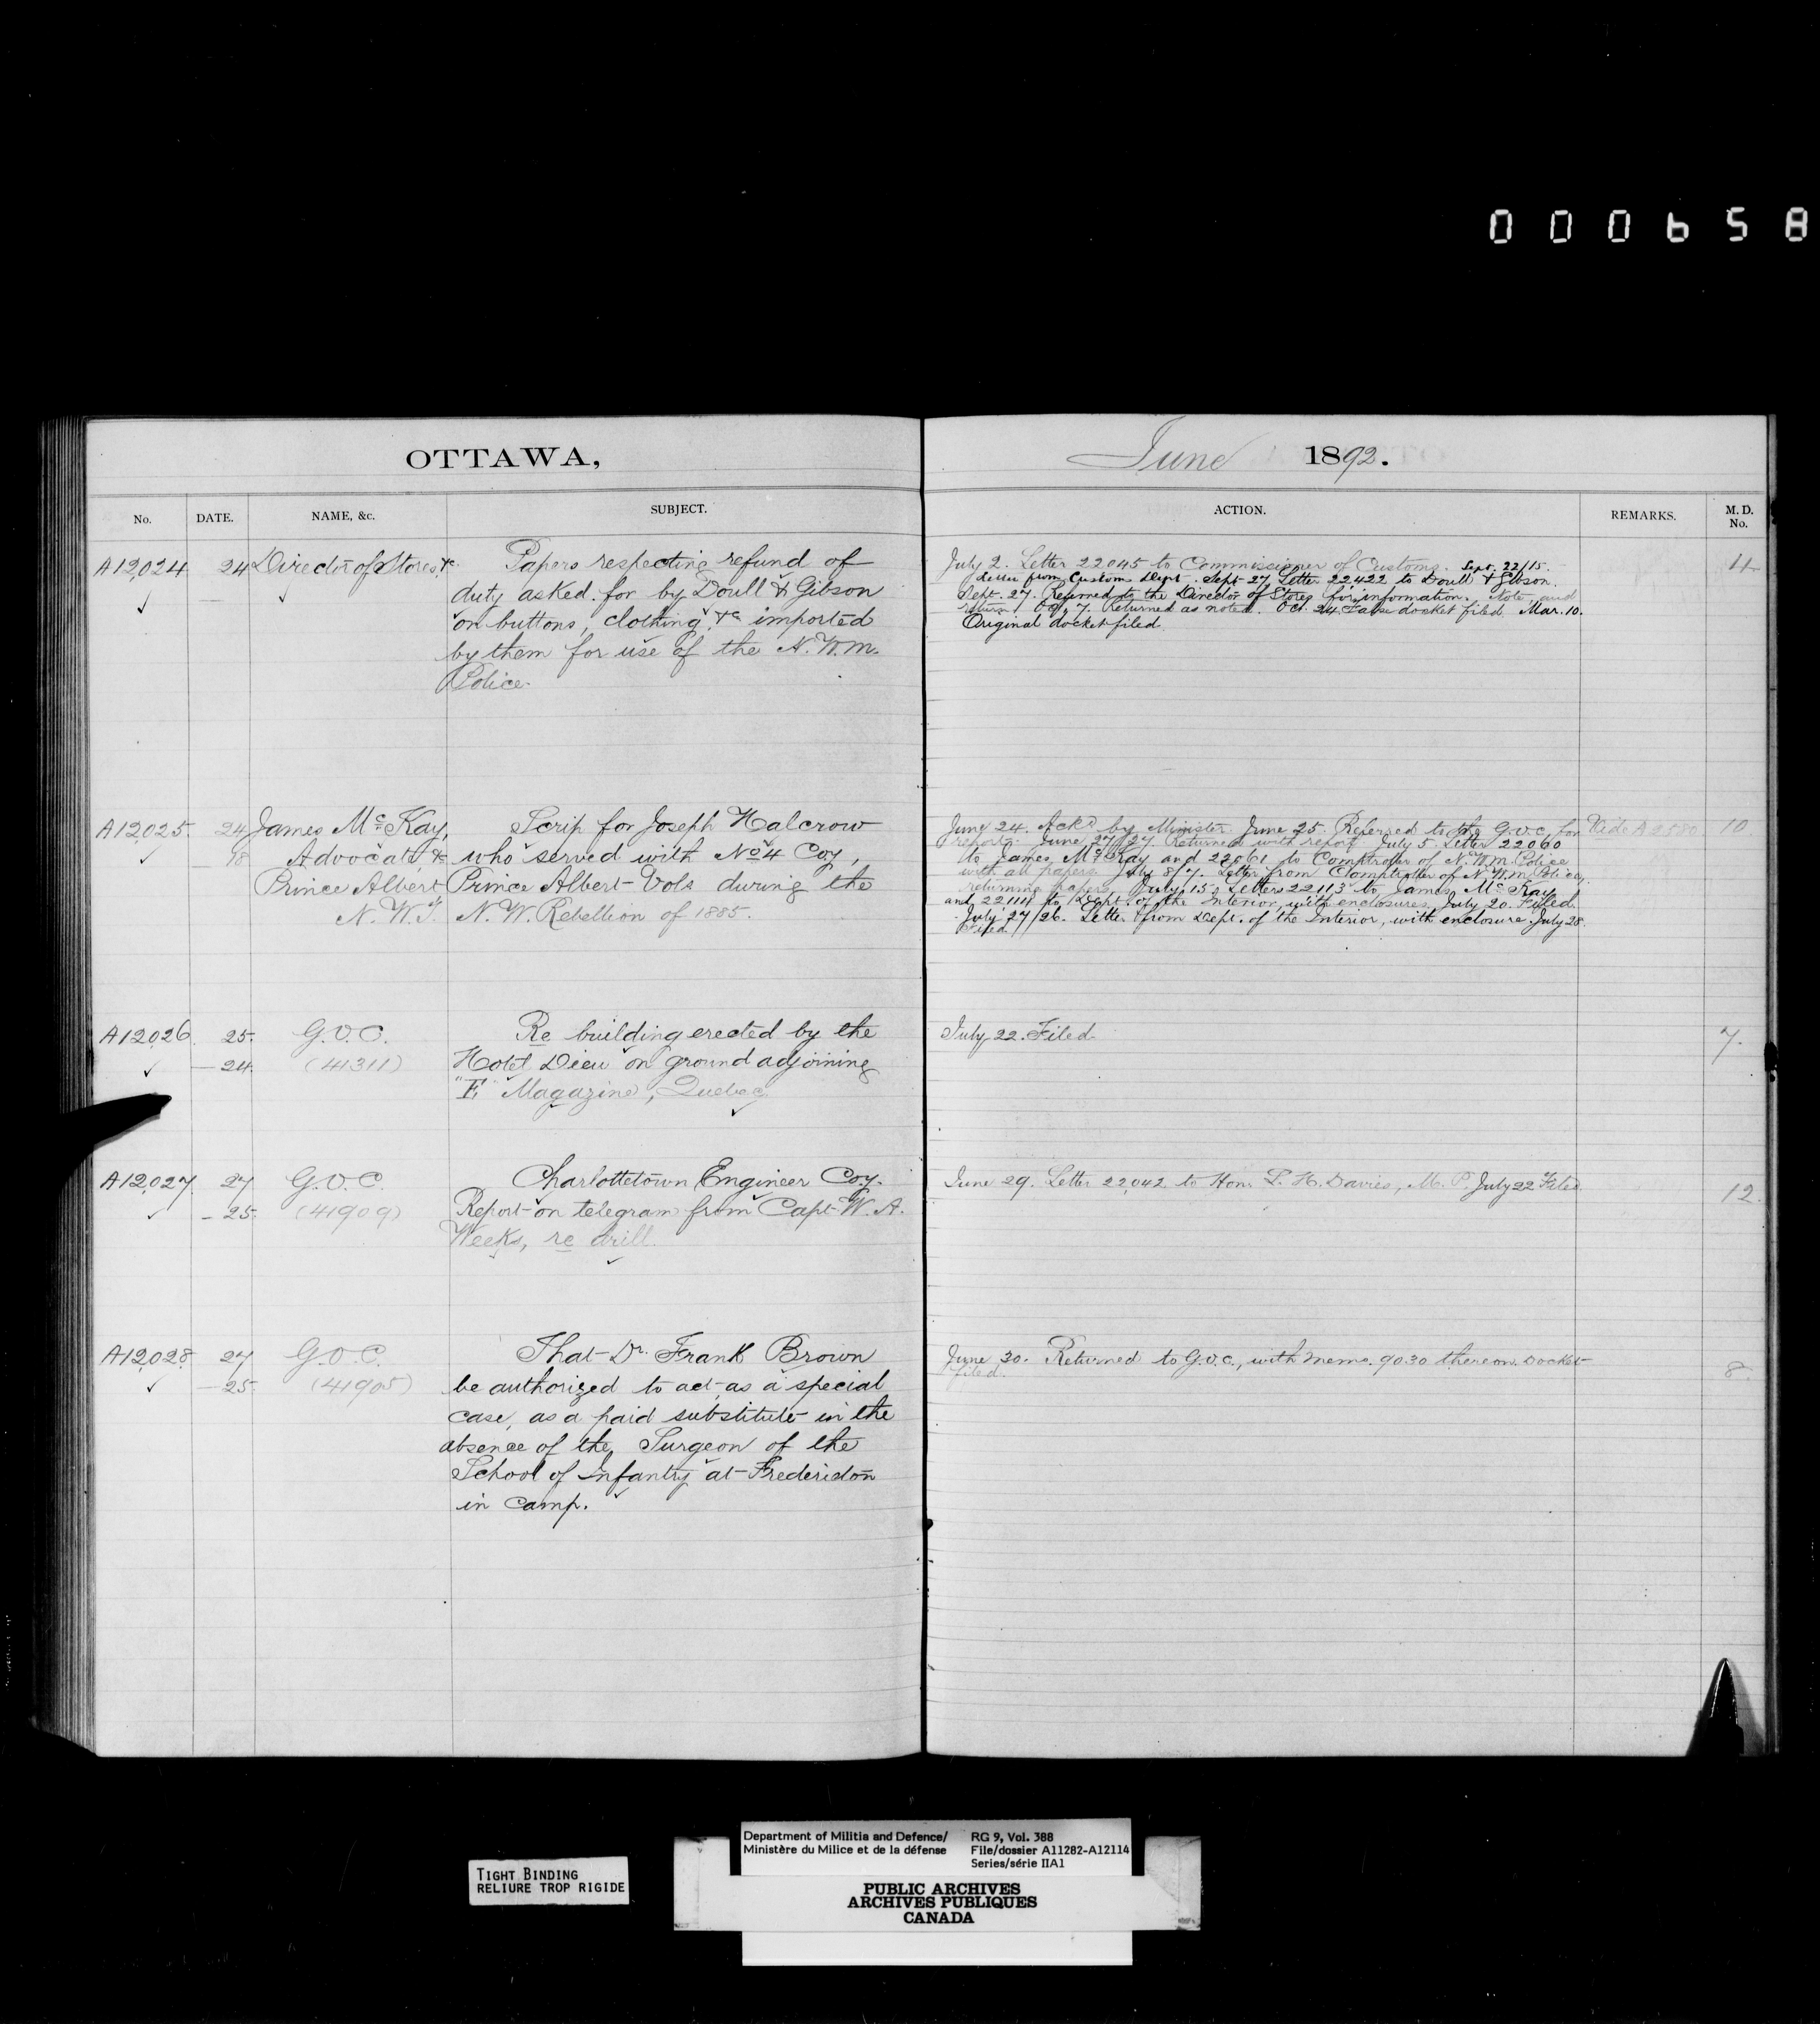 000658
OTTAWA,
June 1892.
No.
DATE.
NAME, &c.
SUBJECT.
ACTION.
REMARKS.
M. D. No.
A12,024
24
Director of Stores, &c
Papers respecting refund of
duty asked for by Doull & Gibson
on buttons, clothing, &c imported
by them for use of the N.W.M.
Police.
July 2. Letter 22045 to Commissioner of Customs. Sept. 22/15.
Letter from Customs Dept. Sept 27 Letter 22422 to Doull & Gibson.
Sept. 27. Referred to the Director of Stores for information. Note and
return. Oct. 7. Returned as noted. Oct. 24. False docket filed. Mar. 10.
Original docket filed.
4
A12,025.
24
18
James McKay,
Advocate, &c
Prince Albert
N.W.T.
Scrip for Joseph Halcrow
who served with No 4 Coy,
Prince Albert Vols during the
N.W. Rebellion of 1885.
June 24. Ackd by Minister. June 25. Referred to the G.O.C. for
report. June 27/27. Returned with report. July 5. Letter 22060
to James McKay and 22061 to Comptroller of N.W.M. Police
with all papers. July 8/7. Letter from Comptroller of N.W.M. Police,
returning papers. July 15. Letters 22113 to James McKay
and 22114 to Dept. of the Interior, with enclosures. July 20. Filed.
July 27/26. Letter from Dept. of the Interior, with enclosure. July 28.
Filed.
Vide A2580
10
A12,026
25.
— 24.
G.O.C.
(41311)
Re building erected by the
Hotel Dieu on ground adjoining
"E" Magazine, Quebec.
July 22. Filed.
7.
A12,027.
27
— 25.
G.O.C.
(41909)
Charlottetown Engineer Coy.
Report on telegram from Capt. W. A.
Weeks, re drill.
June 29. Letter 22,042 to Hon. L. H. Davies, M. P. July 22 Filed.
12.
A12,028.
27
— 25.
G.O.C.
(41905)
That Dr. Frank Brown
be authorized to act, as a special
case, as a paid substitute in the
absence of the Surgeon of the
School of Infantry at Fredericton
in camp.
June 30. Returned to G.O.C., with memo. 9030 thereon. Docket
filed.
8.
Department of Militia and Defence/
Ministère du Milice et de la défense
RG 9, Vol. 388
File/dossier A11282-A12114
Series/série IIA1
TIGHT BINDING
RELIURE TROP RIGIDE
PUBLIC ARCHIVES
ARCHIVES PUBLIQUES
CANADA